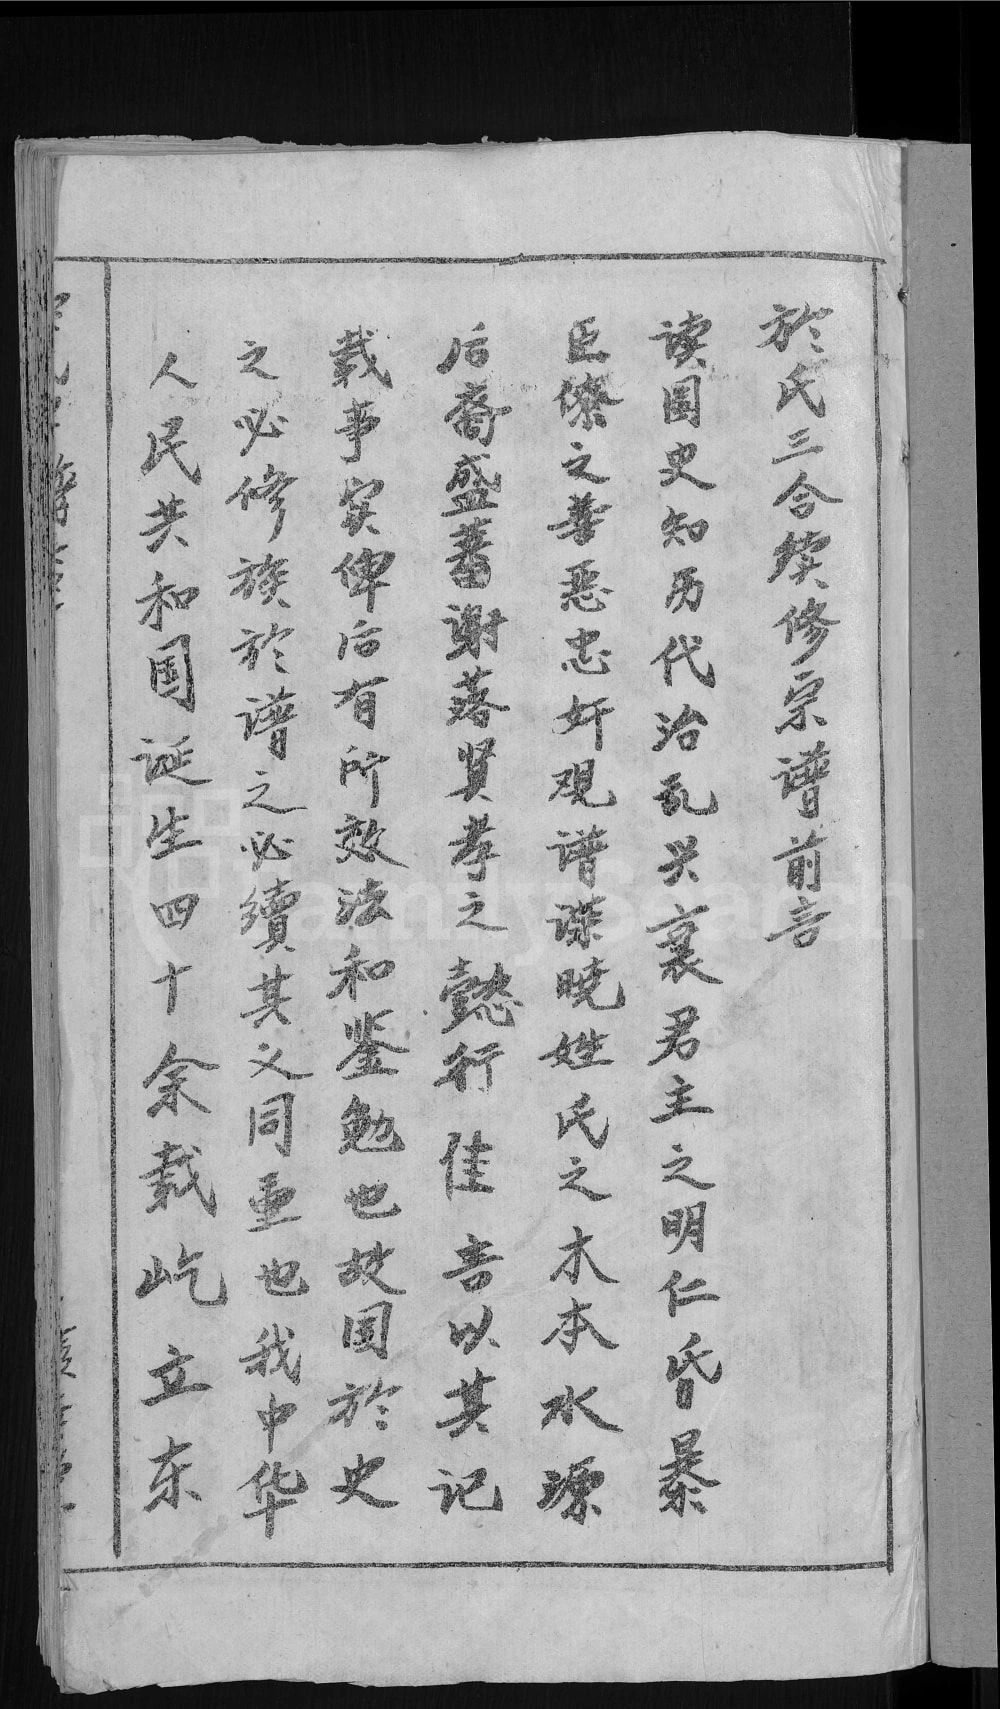 於氏三合续修宗谱前言
读国史知历代治乱兴衰君主之明仁昏暴
臣僚之善恶忠奸观谱牒晓姓氏之木本水源
后裔盛蕃谢落贤孝之懿行佳言以其记
载事实俾后有所效法和鉴勉也故国於史
之必修族於谱之必續其义同重也我中华
人民共和国诞生四十余载屹立东